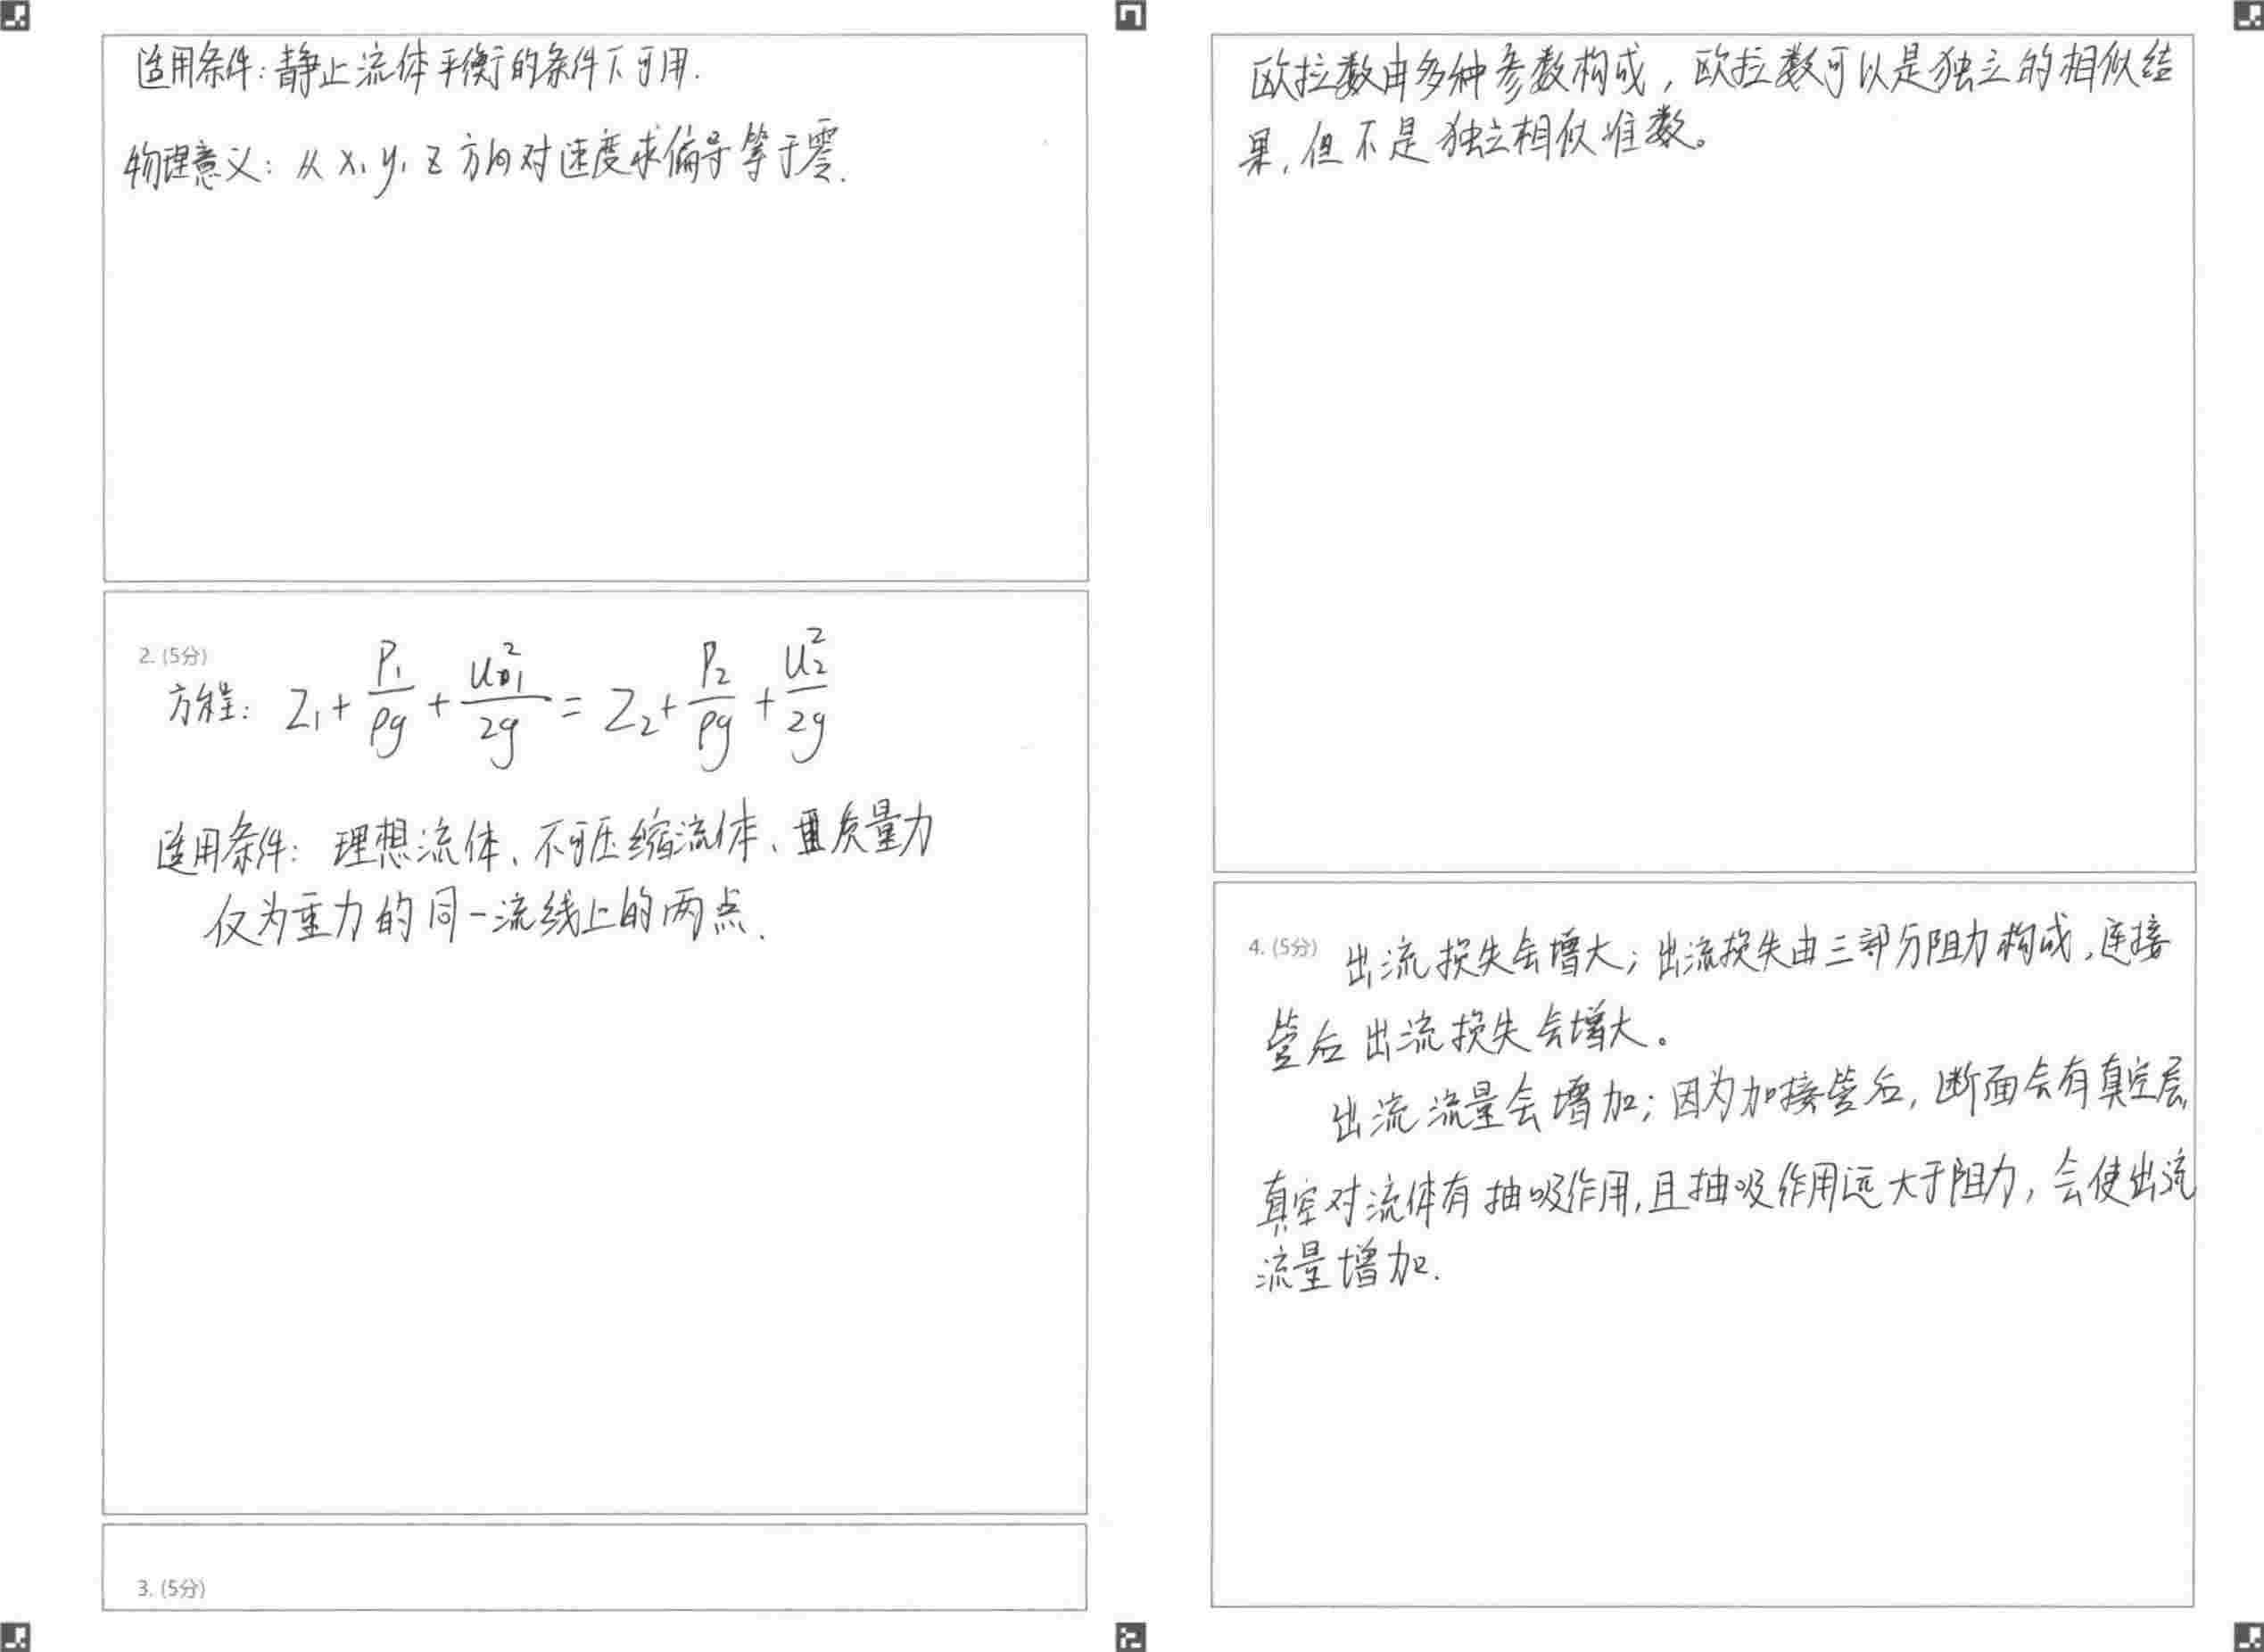 适用条件:静止流体平衡的条件下可用.
物理意义: 从 x, y, z 方向对速度求偏导等于零.
2. (5分)
方程: Z₁ + P₁/ρg + u₁²/2g = Z₂ + P₂/ρg + u₂²/2g
适用条件: 理想流体、不可压缩流体、质量力
仅为重力的同一流线上的两点.
3. (5分)
欧拉数由多种参数构成, 欧拉数可以是独立的相似结
果, 但不是独立相似准数。
4. (5分) 出流损失会增大; 出流损失由三部分阻力构成, 连接
管后出流损失会增大。
出流流量会增加; 因为加接管后, 断面会有真空层,
真空对流体有抽吸作用, 且抽吸作用远大于阻力, 会使出流
流量增加.